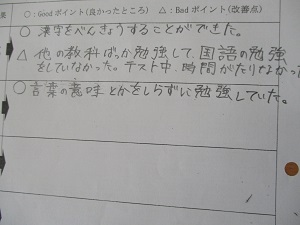 ○：Goodポイント（良かったところ） △：Badポイント（改善点）
○ 漢字をべんきょうすることができた。
△ 他の教科ばっか勉強して、国語の勉強
をしていなかった。テスト中、時間がたりなかっ
○ 言葉の意味とかをしらずに勉強していた。